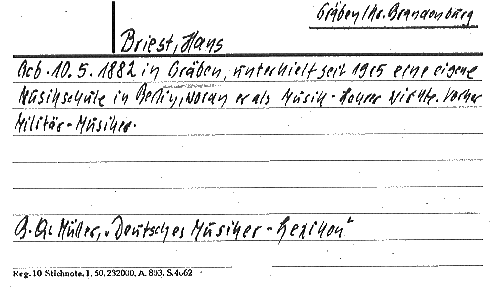 Gräben/Kr. Brandenburg
Briest, Hans
Geb. 10.5.1882 in Gräben, unterhielt seit 1905 eine eigene
Musikschule in Berlin, woran er als Musik-Lehrer wirkte. Vorher
Militär-Musiker.
Müller, „Deutsches Musiker-Lexikon"
Reg. 10 Stichnote. I, 50, 232000, A. 803. S. 4662